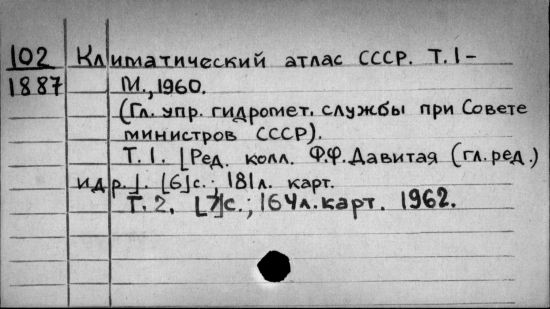 102 Климатический атлас СССР. Т.1-
1887 М., 1960.
(Гл. упр. гидромет. службы при Совете
министров СССР).
Т. 1. [Ред. колл. Ф.Ф. Давитая (гл. ред.)
и др.]. [6] с.; 181 л. карт.
Т. 2. [7] с.; 164 л. карт. 1962.